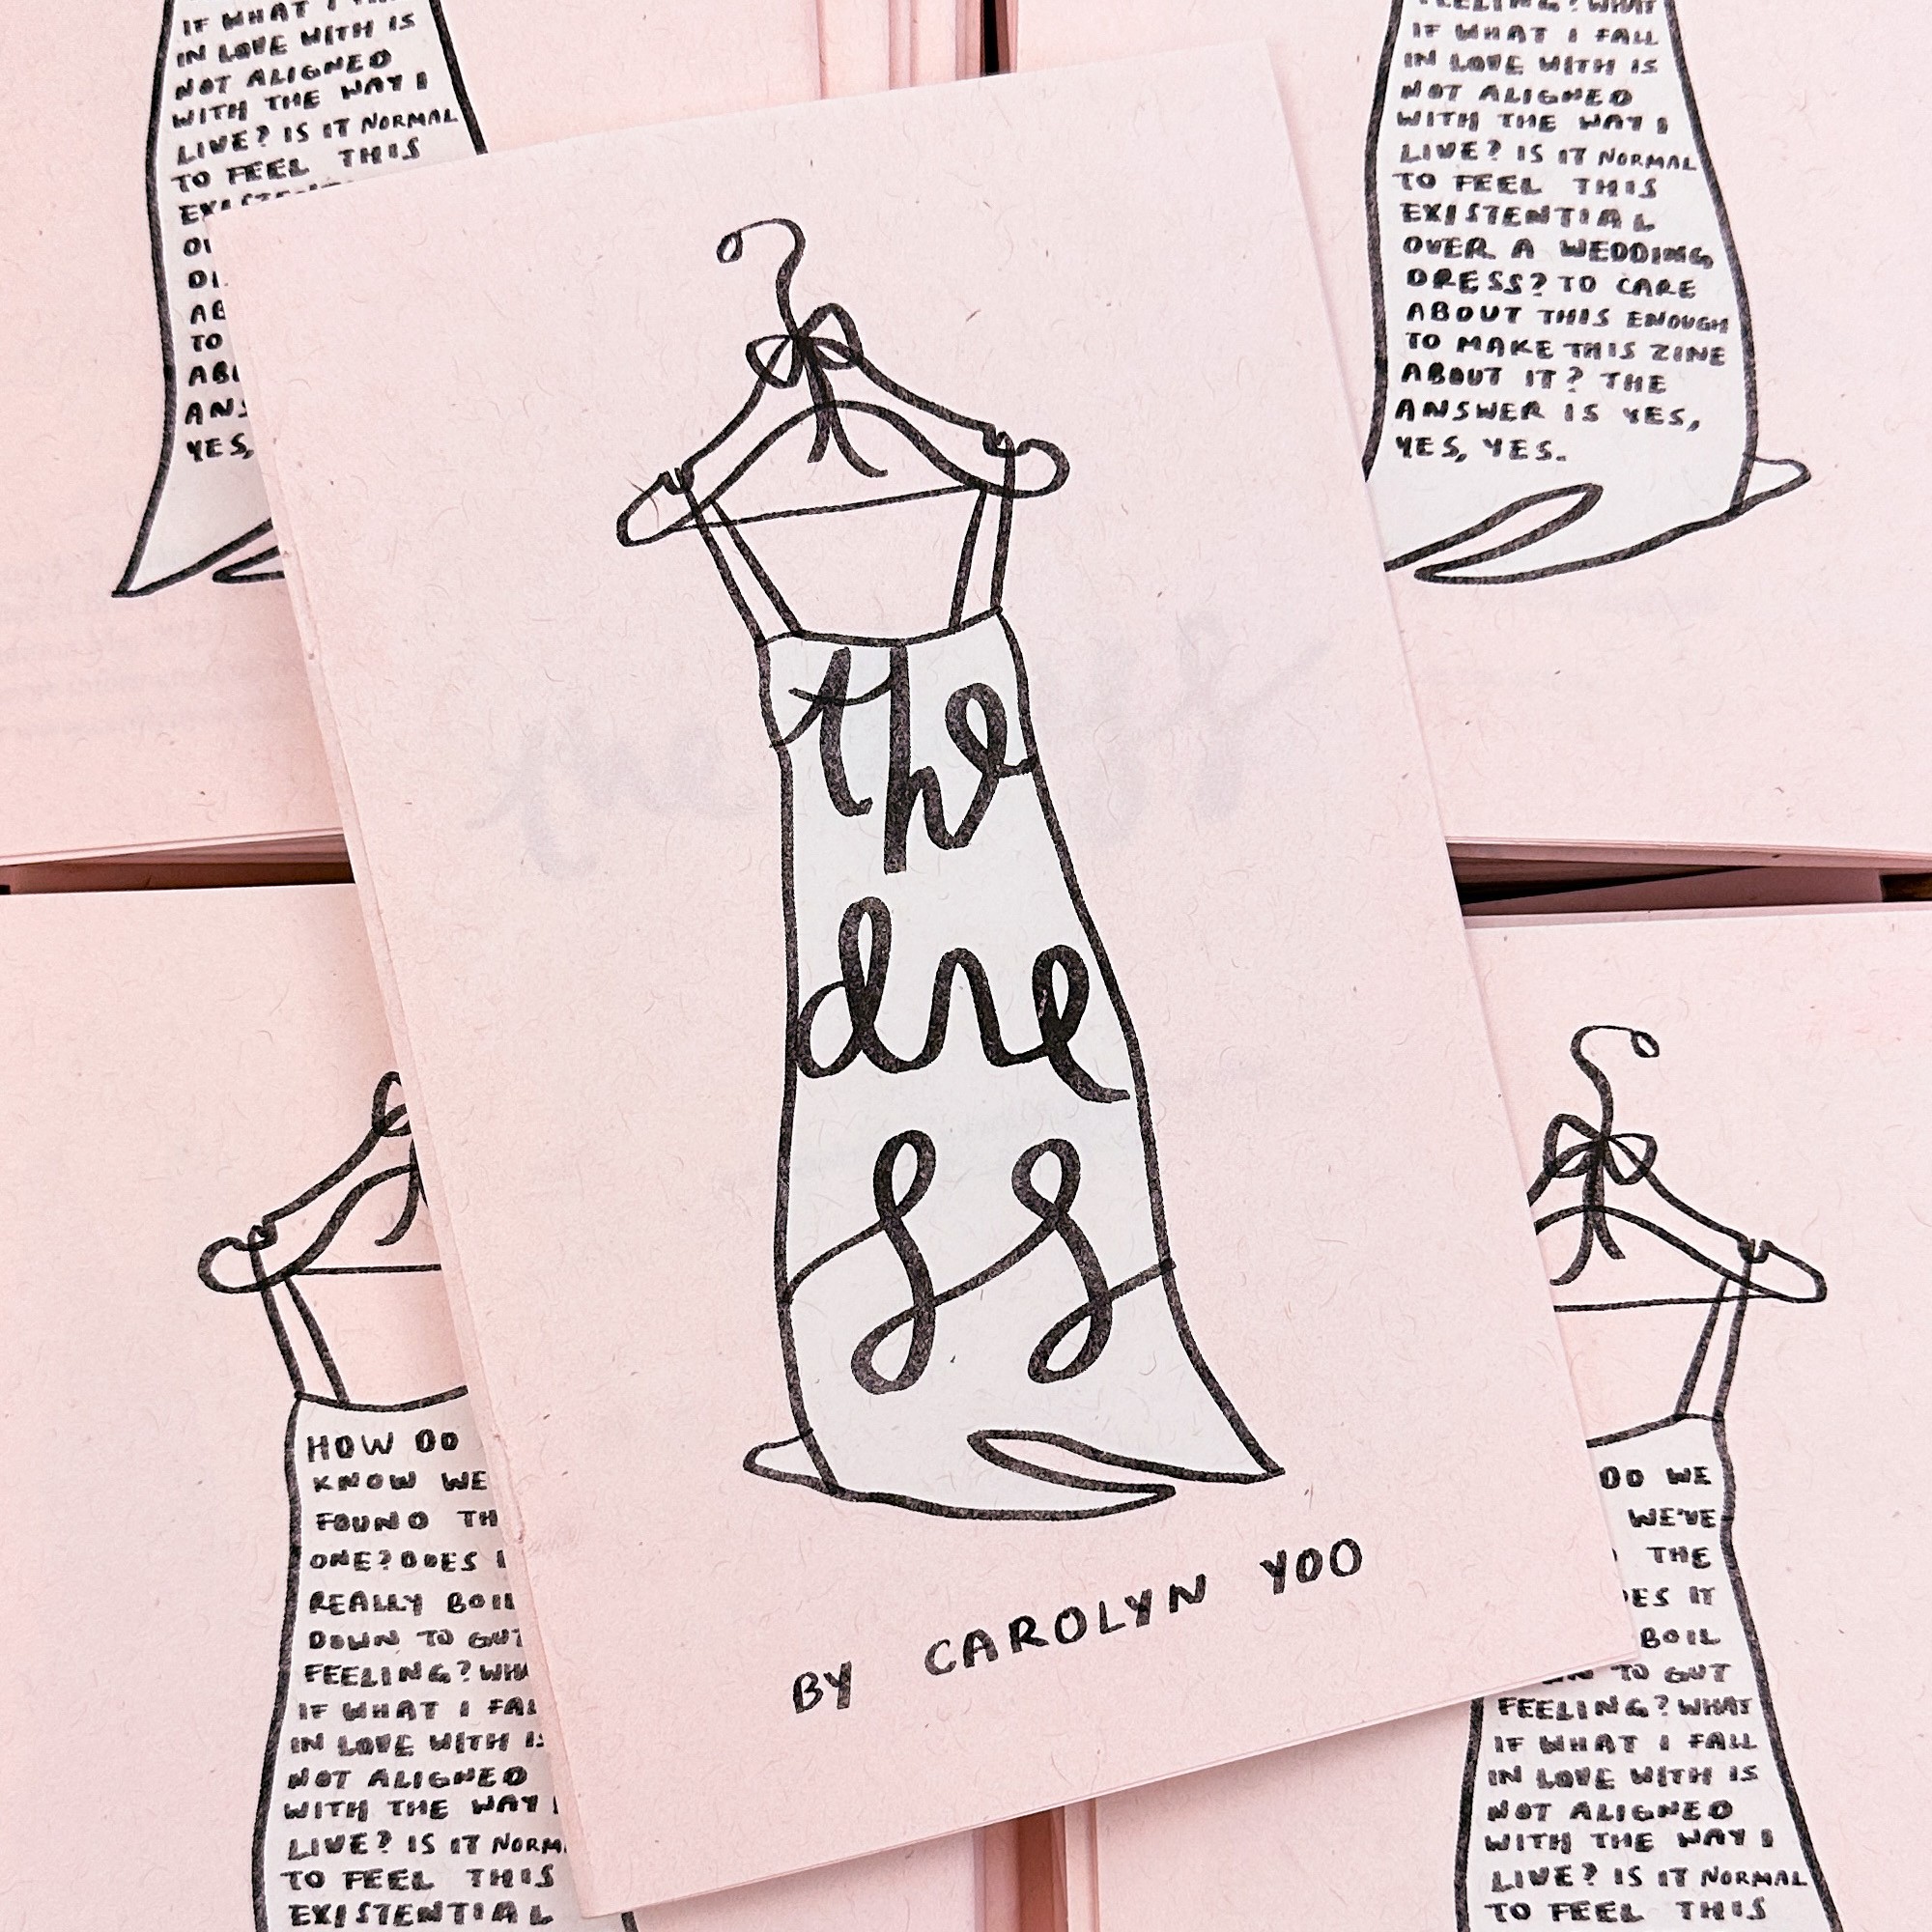 IF WHAT I
IN LOVE WITH IS
NOT ALIGNED
WITH THE WAY I
LIVE? IS IT NORMAL
TO FEEL THIS
YES,
IF WHAT I FALL
IN LOVE WITH IS
NOT ALIGNED
WITH THE WAY I
LIVE? IS IT NORMAL
TO FEEL THIS
EXISTENTIAL
OVER A WEDDING
DRESS? TO CARE
ABOUT THIS ENOUGH
TO MAKE THIS ZINE
ABOUT IT? THE
ANSWER IS YES,
YES, YES.
the
dre
ss
BY CAROLYN YOO
HOW DO
KNOW WE
FOUND TH
ONE? DOES I
REALLY BOIL
DOWN TO GUT
FEELING? WHA
IF WHAT I FAL
IN LOVE WITH IS
NOT ALIGNED
WITH THE WAY I
LIVE? IS IT NORM
TO FEEL THIS
EXISTENTIAL
DO WE
WE'VE
THE
ES IT
BOIL
TO GUT
FEELING? WHAT
IF WHAT I FALL
IN LOVE WITH IS
NOT ALIGNED
WITH THE WAY I
LIVE? IS IT NORMAL
TO FEEL THIS